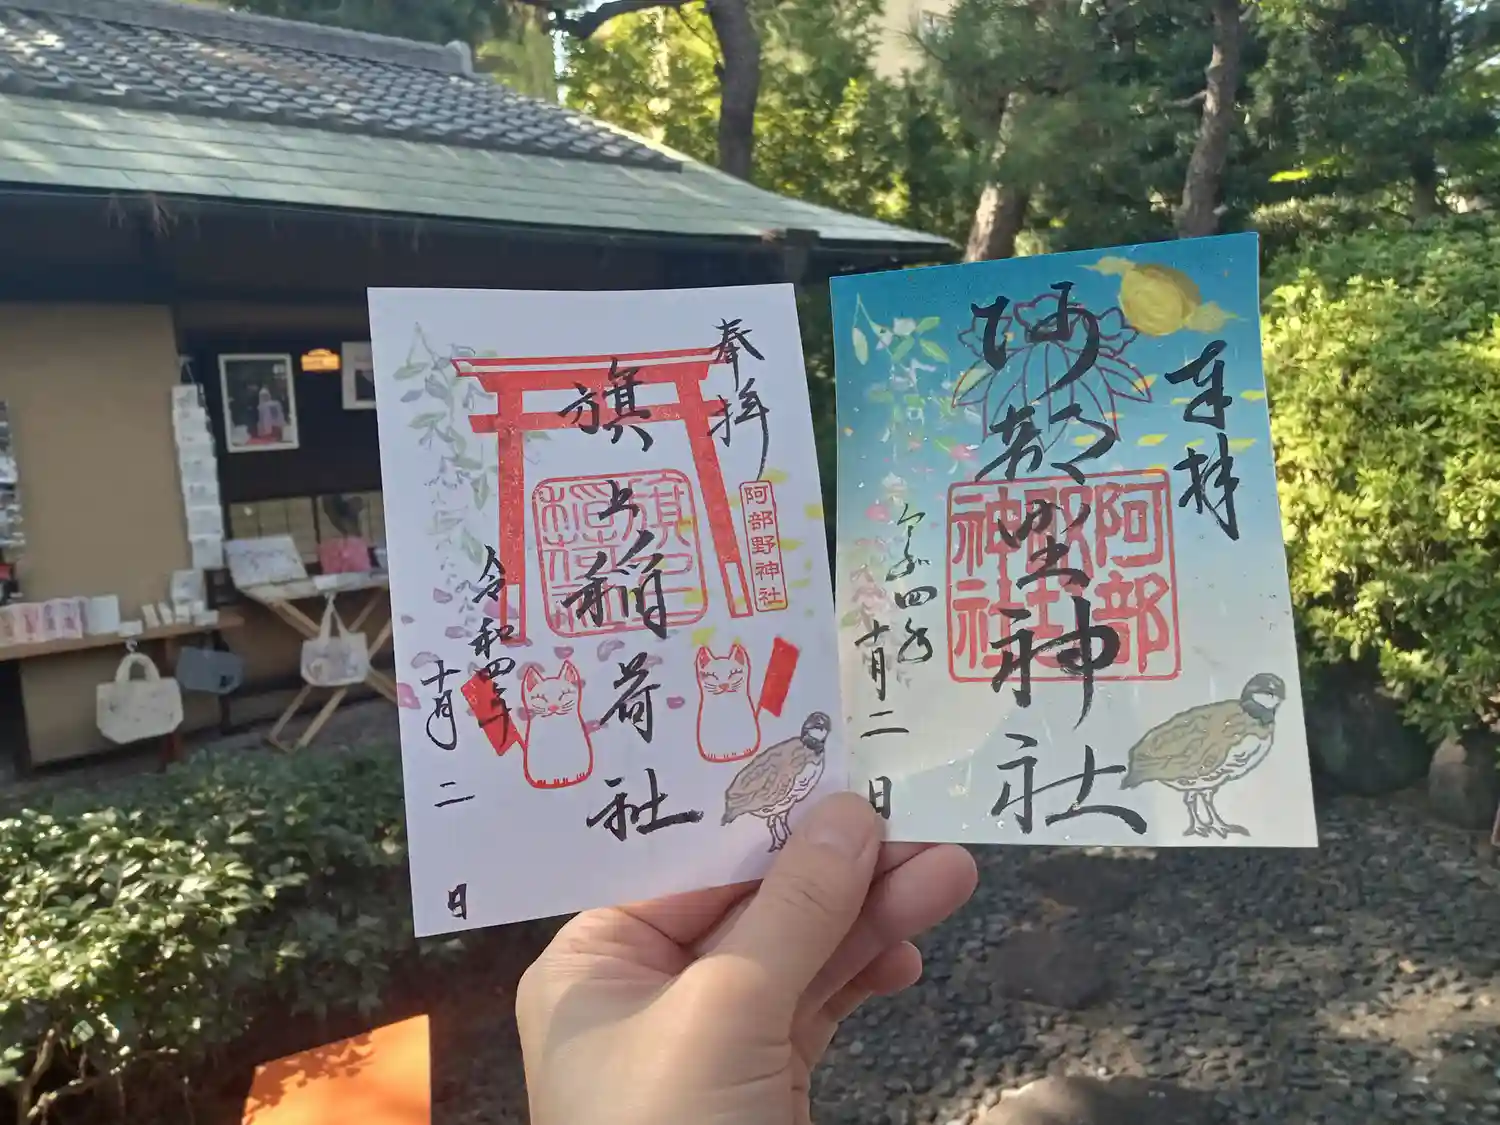 奉拝
阿部野神社
旗上稲荷社
旗上
稲荷社
令和四年
十月二日
奉拝
阿部野神社
阿部
野
神社
令和四年
十月二日